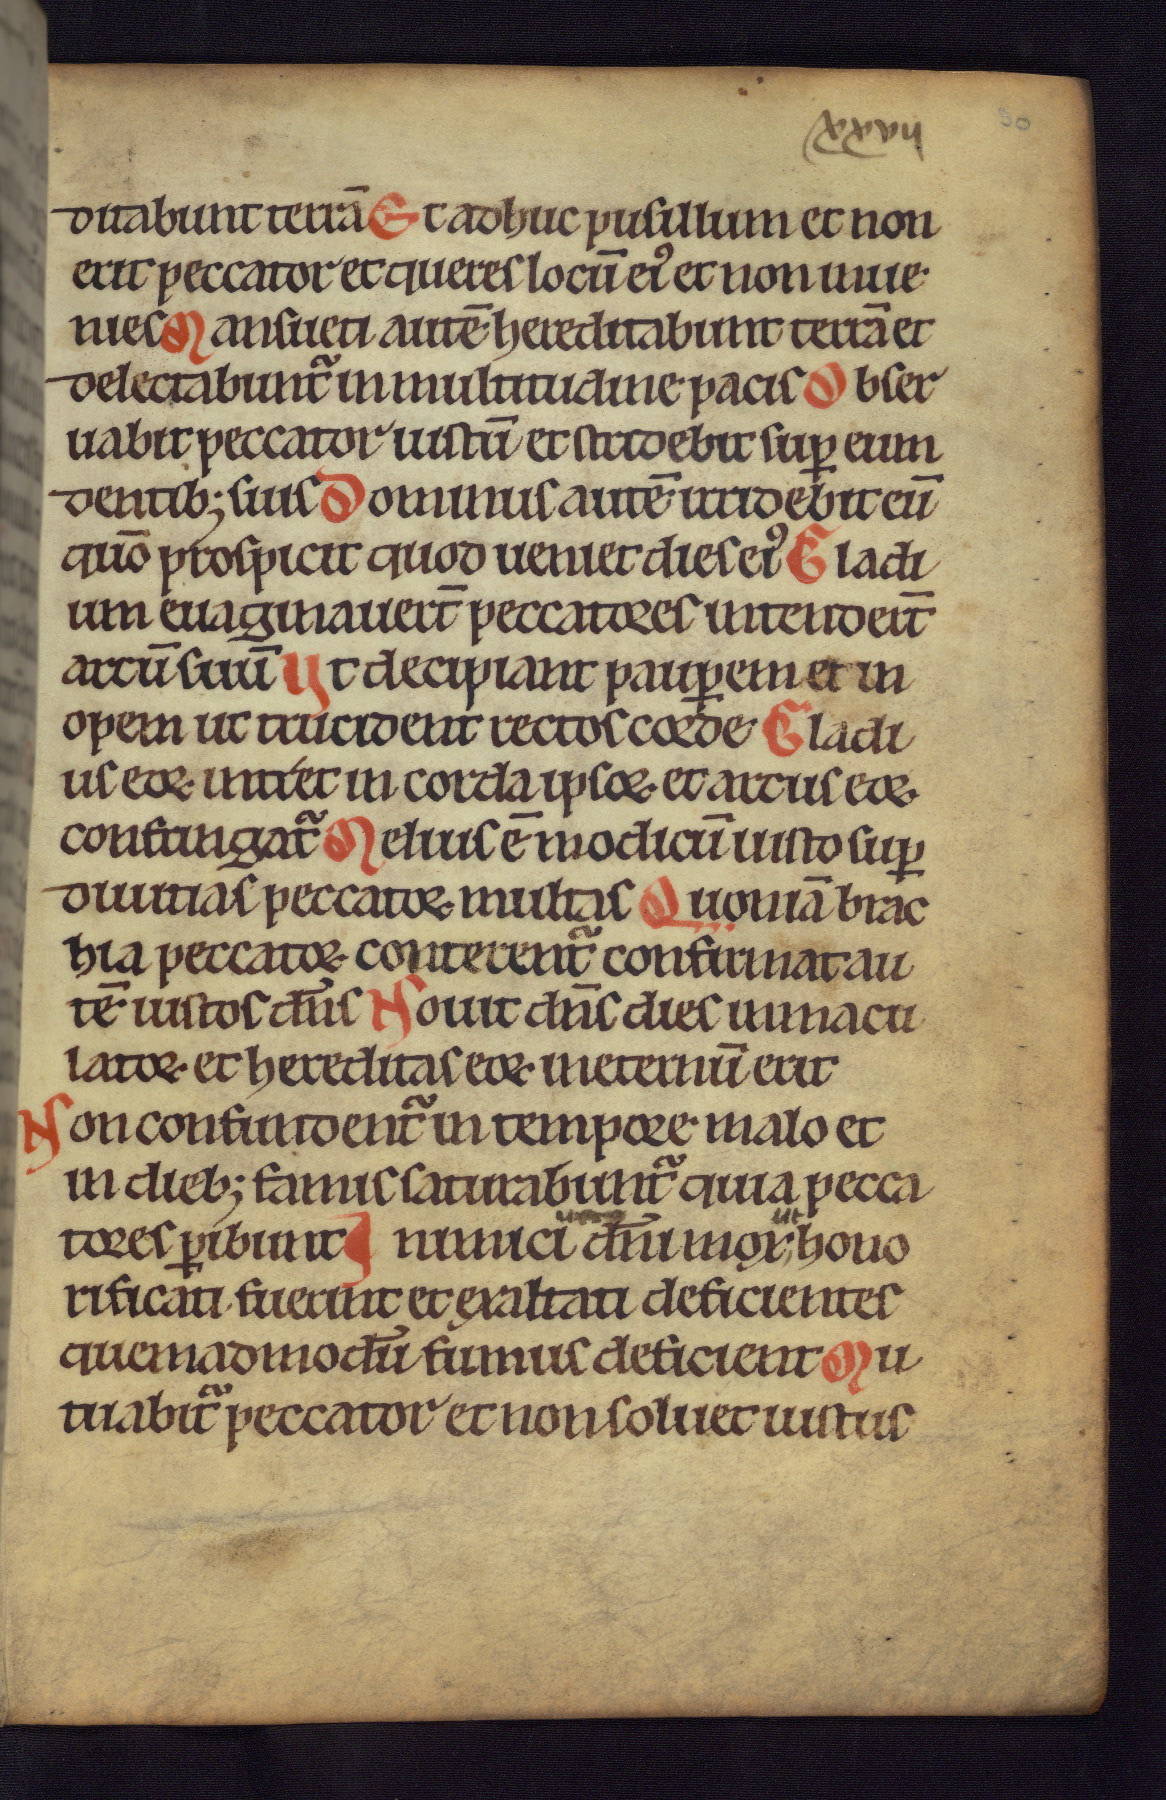 xxxvii 30
ditabunt terrā Et adhuc pusillum et non
erit peccator et queres locū eiꝰ et non inue
nies Mansueti autē hereditabunt terrā et
delectabunt᷑ in multitudine pacis Obser
uabit peccator iustū et stridebit suꝑ eum
dentibꝫ suis Dominus autē irridebit eū
quō prospicit quod ueniet dies eiꝰ Gladi
um euaginauert̄ peccatores intendert̄
arcū suū Ut decipiant pauꝑem et in
opem ut trucident rectos corde Gladi
us eoꝝ intret in corda ipsoꝝ et arcus eoꝝ
confringat᷑ Melius ē modicū iusto suꝑ
diuitias peccatoꝝ multas Quoniā brac
hia peccatoꝝ conterent᷑ confirmat au
tē iustos dn̄s Nouit dn̄s dies inmacu
latoꝝ et hereditas eoꝝ ineternū erit
Non confundent᷑ in tempore malo et
in diebꝫ famis saturabunt᷑ quia pecca
tores ꝑibunt Inimici u͞o dn̄i mox ut hono
rificati fuerint et exaltati deficientes
quemadmodū fumus deficient Mu
tuabit᷑ peccator et non soluet iustus